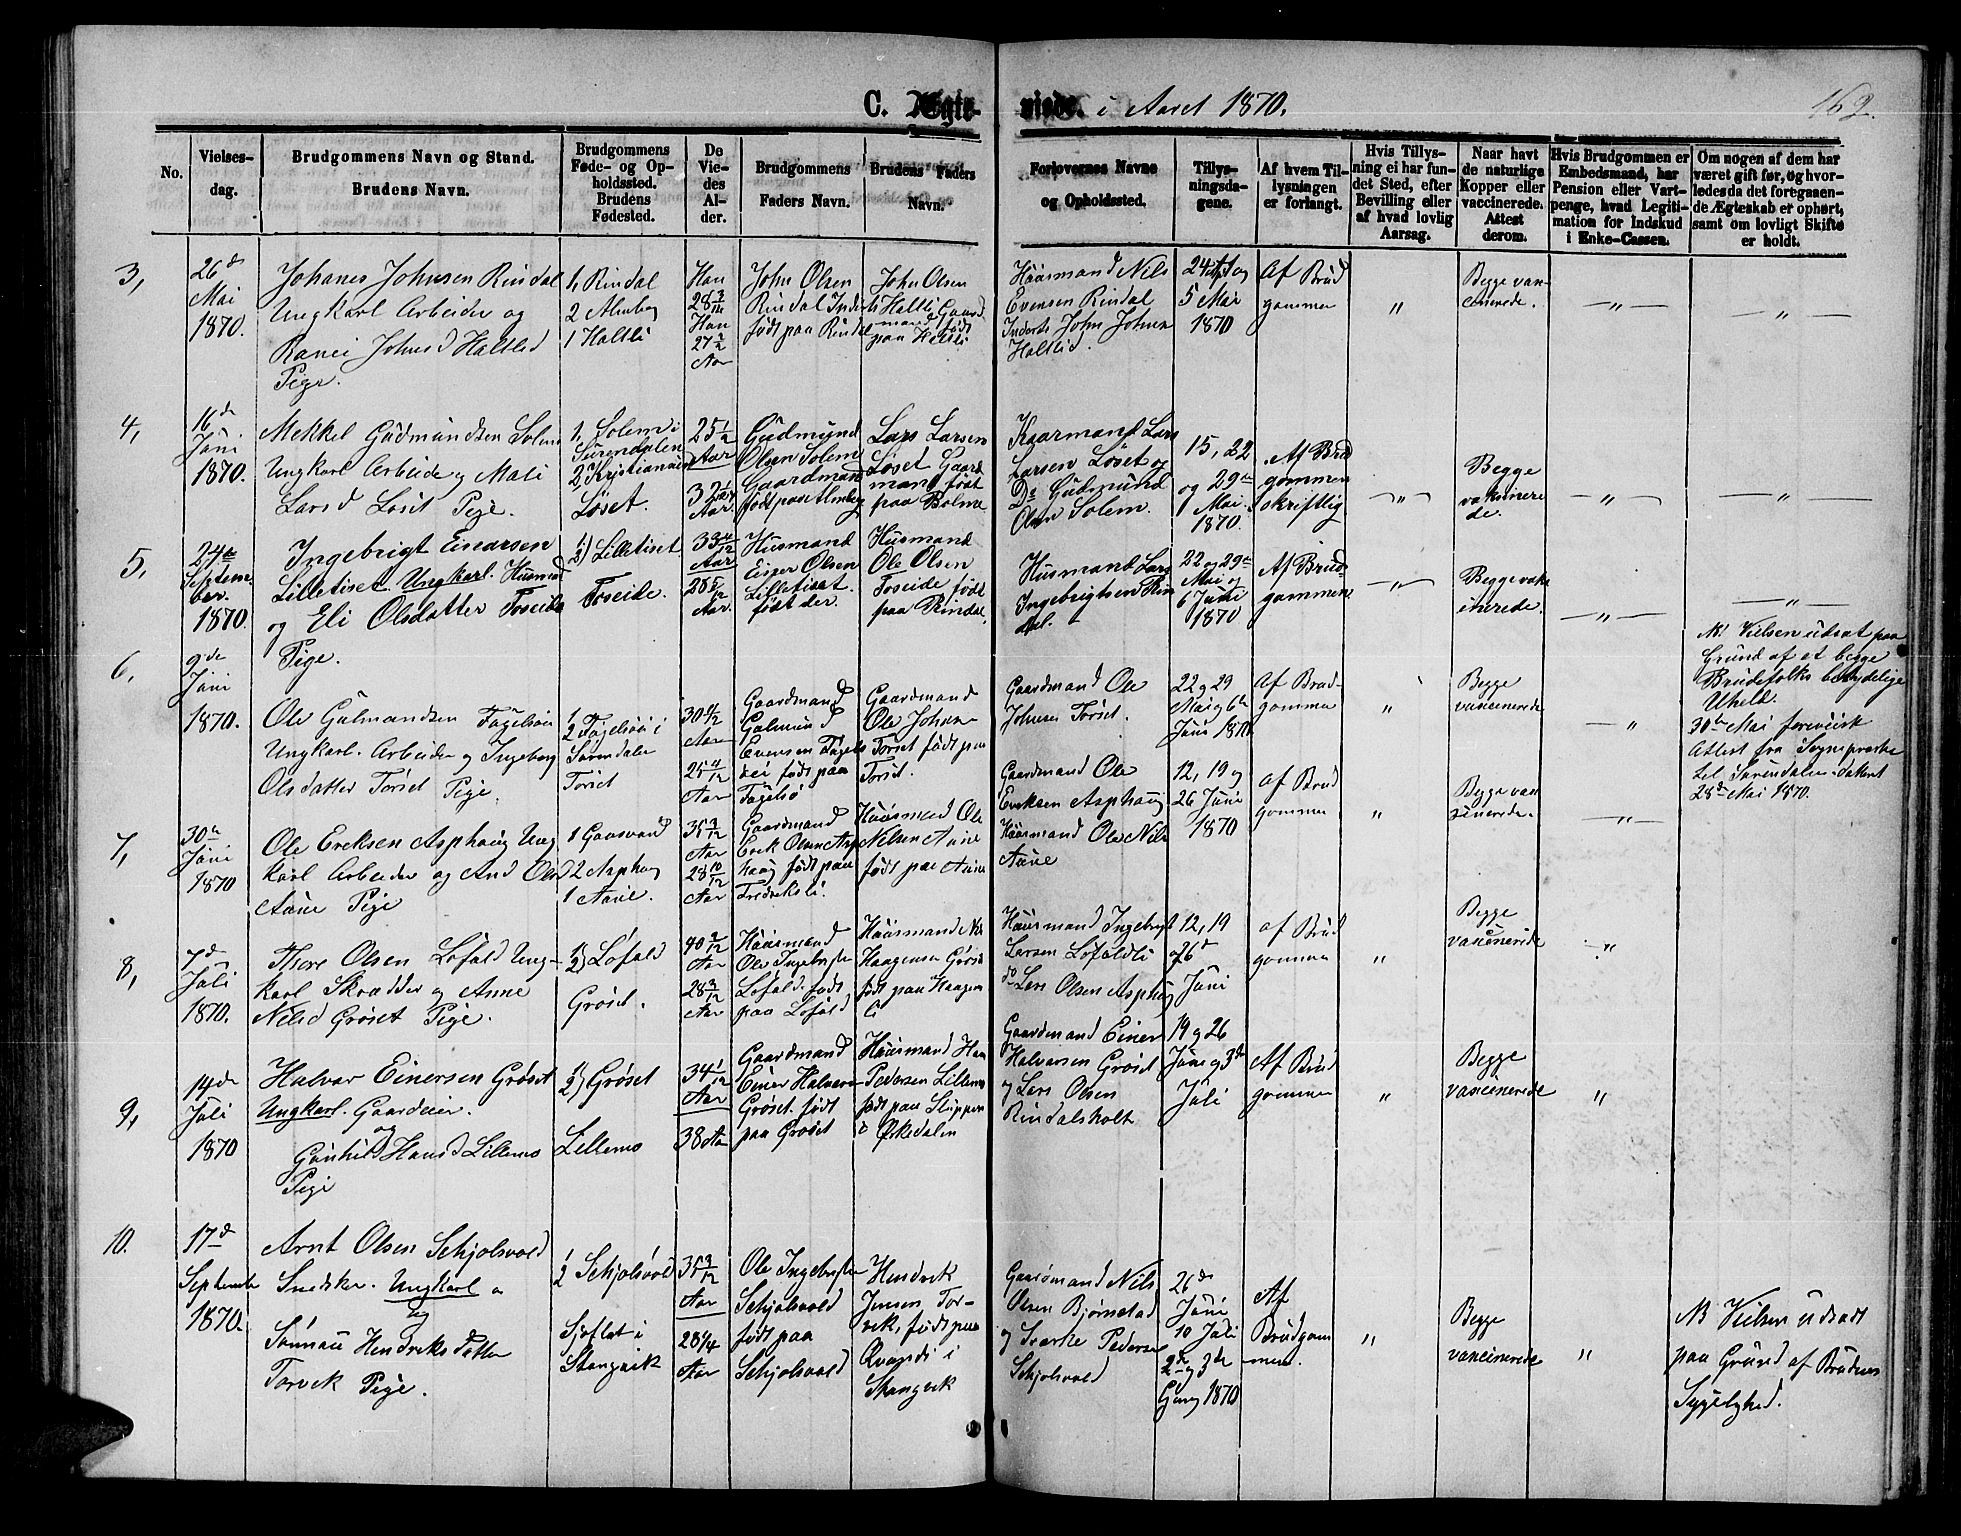 C. Ægte-
viede. i Aaret 1870.
162.
No.
Vielses-
dag.
Brudgommens Navn og Stand.
Brudens Navn.
Brudgommens
Føde- og Op-
holdssted.
Brudens
Fødested.
De
Vie-
des
Al-
der.
Brudgommens
Faders Navn.
Brudens Faders
Navn.
Forlovernes Navne
og Opholdssted.
Tillys-
ningsda-
gene.
Af hvem Til-
lysningen
er forlangt.
Hvis Tillys-
ning ei har fun-
det Sted, efter
Bevilling eller
af hvad lovlig
Aarsag.
Naar havt
de naturlige
Kopper eller
vaccinerede.
Attest
derom.
Hvis Brudgommen er
Embedsmand, har
Pension eller Vart-
penge, hvad Legiti-
mation for Indskud
i Enke-Cassen.
Om nogen af dem har
været gift før, og hvor-
ledes da det foregaaen-
de Ægteskab er ophørt,
samt om lovligt Skifte
er holdt.
3,
26de
Mai
1870.
Johanes Johnsen Rindal
Ungkarl Arbeider og
Ranei Johnsd Haltlid
Pige.
1, Rindal
2 Almbog
1 Haltli
Han
28 3/12
Hun
27 1/2
Aar
John Olsen
Rindal Inderli
født paa Rindal
John Olsen
Haltli Gaard
mand født
paa Haltli
Huusmand Nils
Evensen Rindal
Inderli John Johnsen
Haltlid.
24 Apl og
5 Mai
1870
Af Brud
gommen
"
Begge vac-
cinerede.
"
"
4,
16de
Juni
1870.
Mekkel Gudmundsen Solem
Ungkarl Arbeide og Mali
Larsd Løset Pige.
1, Solem i
Surendalen
2, Kristiansun
Løset.
25 1/2
Aar
32 1/4
Aar.
Gudmund
Olsen Solem
Gaardmand
født paa Almbog
Lars Larsen
Løset Gaard
mand født
paa Bolme
Gaarmand Lars
Larsen Løset og
Do Gudmund
Olsen Solem.
15, 22
og 29de
Mai
1870.
Af Brud
gommen
skriftlig
"
Begge
vaksinere
de.
"
"
5,
24de
Septem-
ber.
1870.
Ingebrigt Einarsen
Lilletiset Ungkarl. Husmand
og Eli Olsdatter Toseide
Pige.
1) 2) Lilletiset
Toseide.
33 4/12
Aar
28 5/12
Aar.
Husmand
Einer Olsen
Lilletiset
født der.
Husmand
Ole Olsen
Toseide født
paa Rindal
Husmand Lars
Ingebrigtsen Rin
dal.
22 og 29de
Mai og
6 Juni
1870
Af Brud-
gommen
"
Begge vaks
inerede.
"
"
N! Vielsen udsat paa
Grund af et begge
Brudefolks betydelige
Uheld.
6,
9de
Juni
1870.
Ole Gulmundsen Fagelsøi
Ungkarl. Arbeider og Ingeborg
Olsdatter Torset Pige.
1
2 Fagelsøi i
Surendalen
Torset
30 4/12
Aar
25 4/12
Aar
Gaardmand
Gulmund
Evensen Fagels
øei født paa
Fagelsø
Gaardmand
Ole Johnsen
Torset født paa
Torset.
Gaardmand Ole
Johnsen Torset.
22 og 29
Mai og 6te
Juni 1870
Af Brud-
gommen
"
Begge
vaccinerede
"
30de Mai foreviist
Attest fra Sognepræsten
til Surendalen dateret
28de Mai 1870.
7,
30te
Juni
1870
Ole Ereksen Asphaug Ung
karl Arbeider og And Olsd
Aune Pige
1 Gaasvand
2 Asphaug
1 Aune.
35 3/12
Aar
28 10/12
Aar
Gaardmand
Erek Olsen Asp
haug født paa
Fredreksli.
Huusmand Ole
Nilsen Aune
født paa Aune
Gaardmand Ole
Ereksen Asphaug
Huusmand Ole Nils
Aune
12, 19 og
26 Juni
1870
af Brud
gommen
"
Begge vac
sinerede.
"
8,
7de
Juli
1870.
Thore Olsen Løfald Ung-
karl Skrædder og Anne
Nilsd Grøset Pige.
1) 2) Løfald
Grøset.
40 2/12
Aar
28 3/12
Aar
Huusmand
Ole Ingebrigtse
Løfald. født
paa Løfald
Huusmand Nils
Haagensen Grøset
født paa Haagen
li
Huusmand Ingebrigt
Larsen Løfaldli
do Lars Olsen Asphaug
12, 19
og 26de
Juni
af Brud
gommen
"
Begge
vaccinerede
"
9,
14de
Juli
1870
Halvor Einersen Grøset
Ungkarl. Gaardeier.
og
Gunhild Hansd Lillemo
Pige
1) 2) Grøset
Lillemo
34 1/12
Aar
38 Aar
Gaardmand
Einer Halvors
Grøset født
paa Grøset
Huusmand Han
Pedersen Lillemo
født paa Slippen
i Ørkedalen
Gaardmand Einer
Halvorsen Grøset
og Lars Olsen
Rindalsholt
19 og 26
Juni og 3de
Juli
Af Brud
gommen
"
Begge
vaccinerede
"
10.
17de
Septembe
1870.
Arnt Olsen Sehjolsvold
Snedker. Ungkarl
og
Sønnau Hendriksdatter
Torvik Pige.
1
2 Sehjolsvold
Sjøflot i
Stangvik
35 3/12
Aar
28 1/4
Aar
Ole Ingebrigtse
Sehjolsvold
født paa
Sehjolsvold
Hendrek
Jensen Tor-
vek, født paa
Qvands i
Stangvek
Gaardmand Nils
Olsen Bjørnstad
og Sværke Pederse
Sehjolsvold
26de
Juni
10 Juli
2den og 3de
Gang 1870
Af
Brudgom
men.
"
Begge
vaccinerede
"
N Vielsen udsadt
paa Grund af Brudens
Sygelighed.